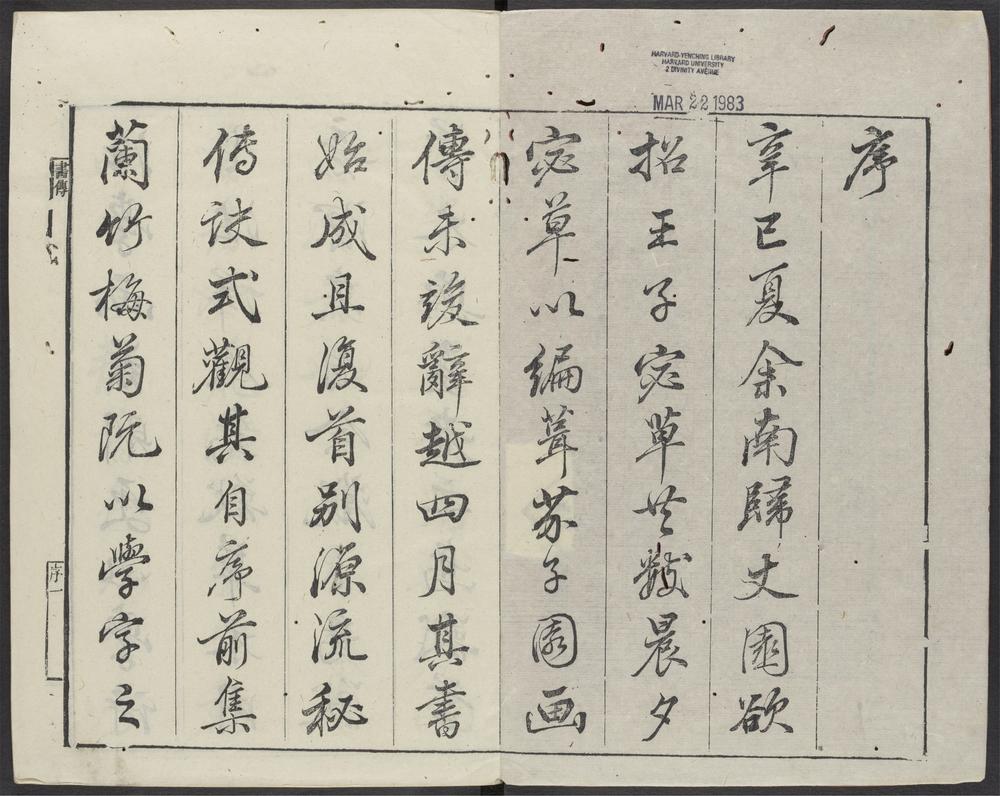 HARVARD-YENCHING LIBRARY
HARVARD UNIVERSITY
2 DIVINITY AVENUE
MAR 22 1983
序
辛巳夏余南歸丈園欲
招王子宓草共數晨夕
宓草以編葺芥子園画
傳未竣辭越四月其書
始成且復首别源流秘
傳訣式觀其自序前集
蘭竹梅菊既以學字之
書傳
序一